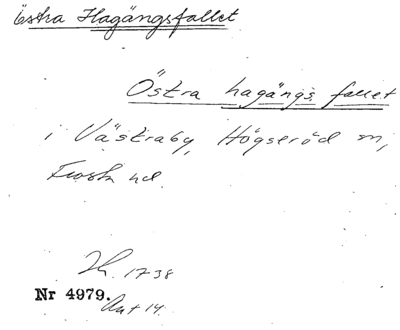 Östra Hagängsfallet
Östra hagängs fallet
i Västraby, Högseröd m,
Frosta hd
Lh. 1738
Nr 4979.
Akt 14.